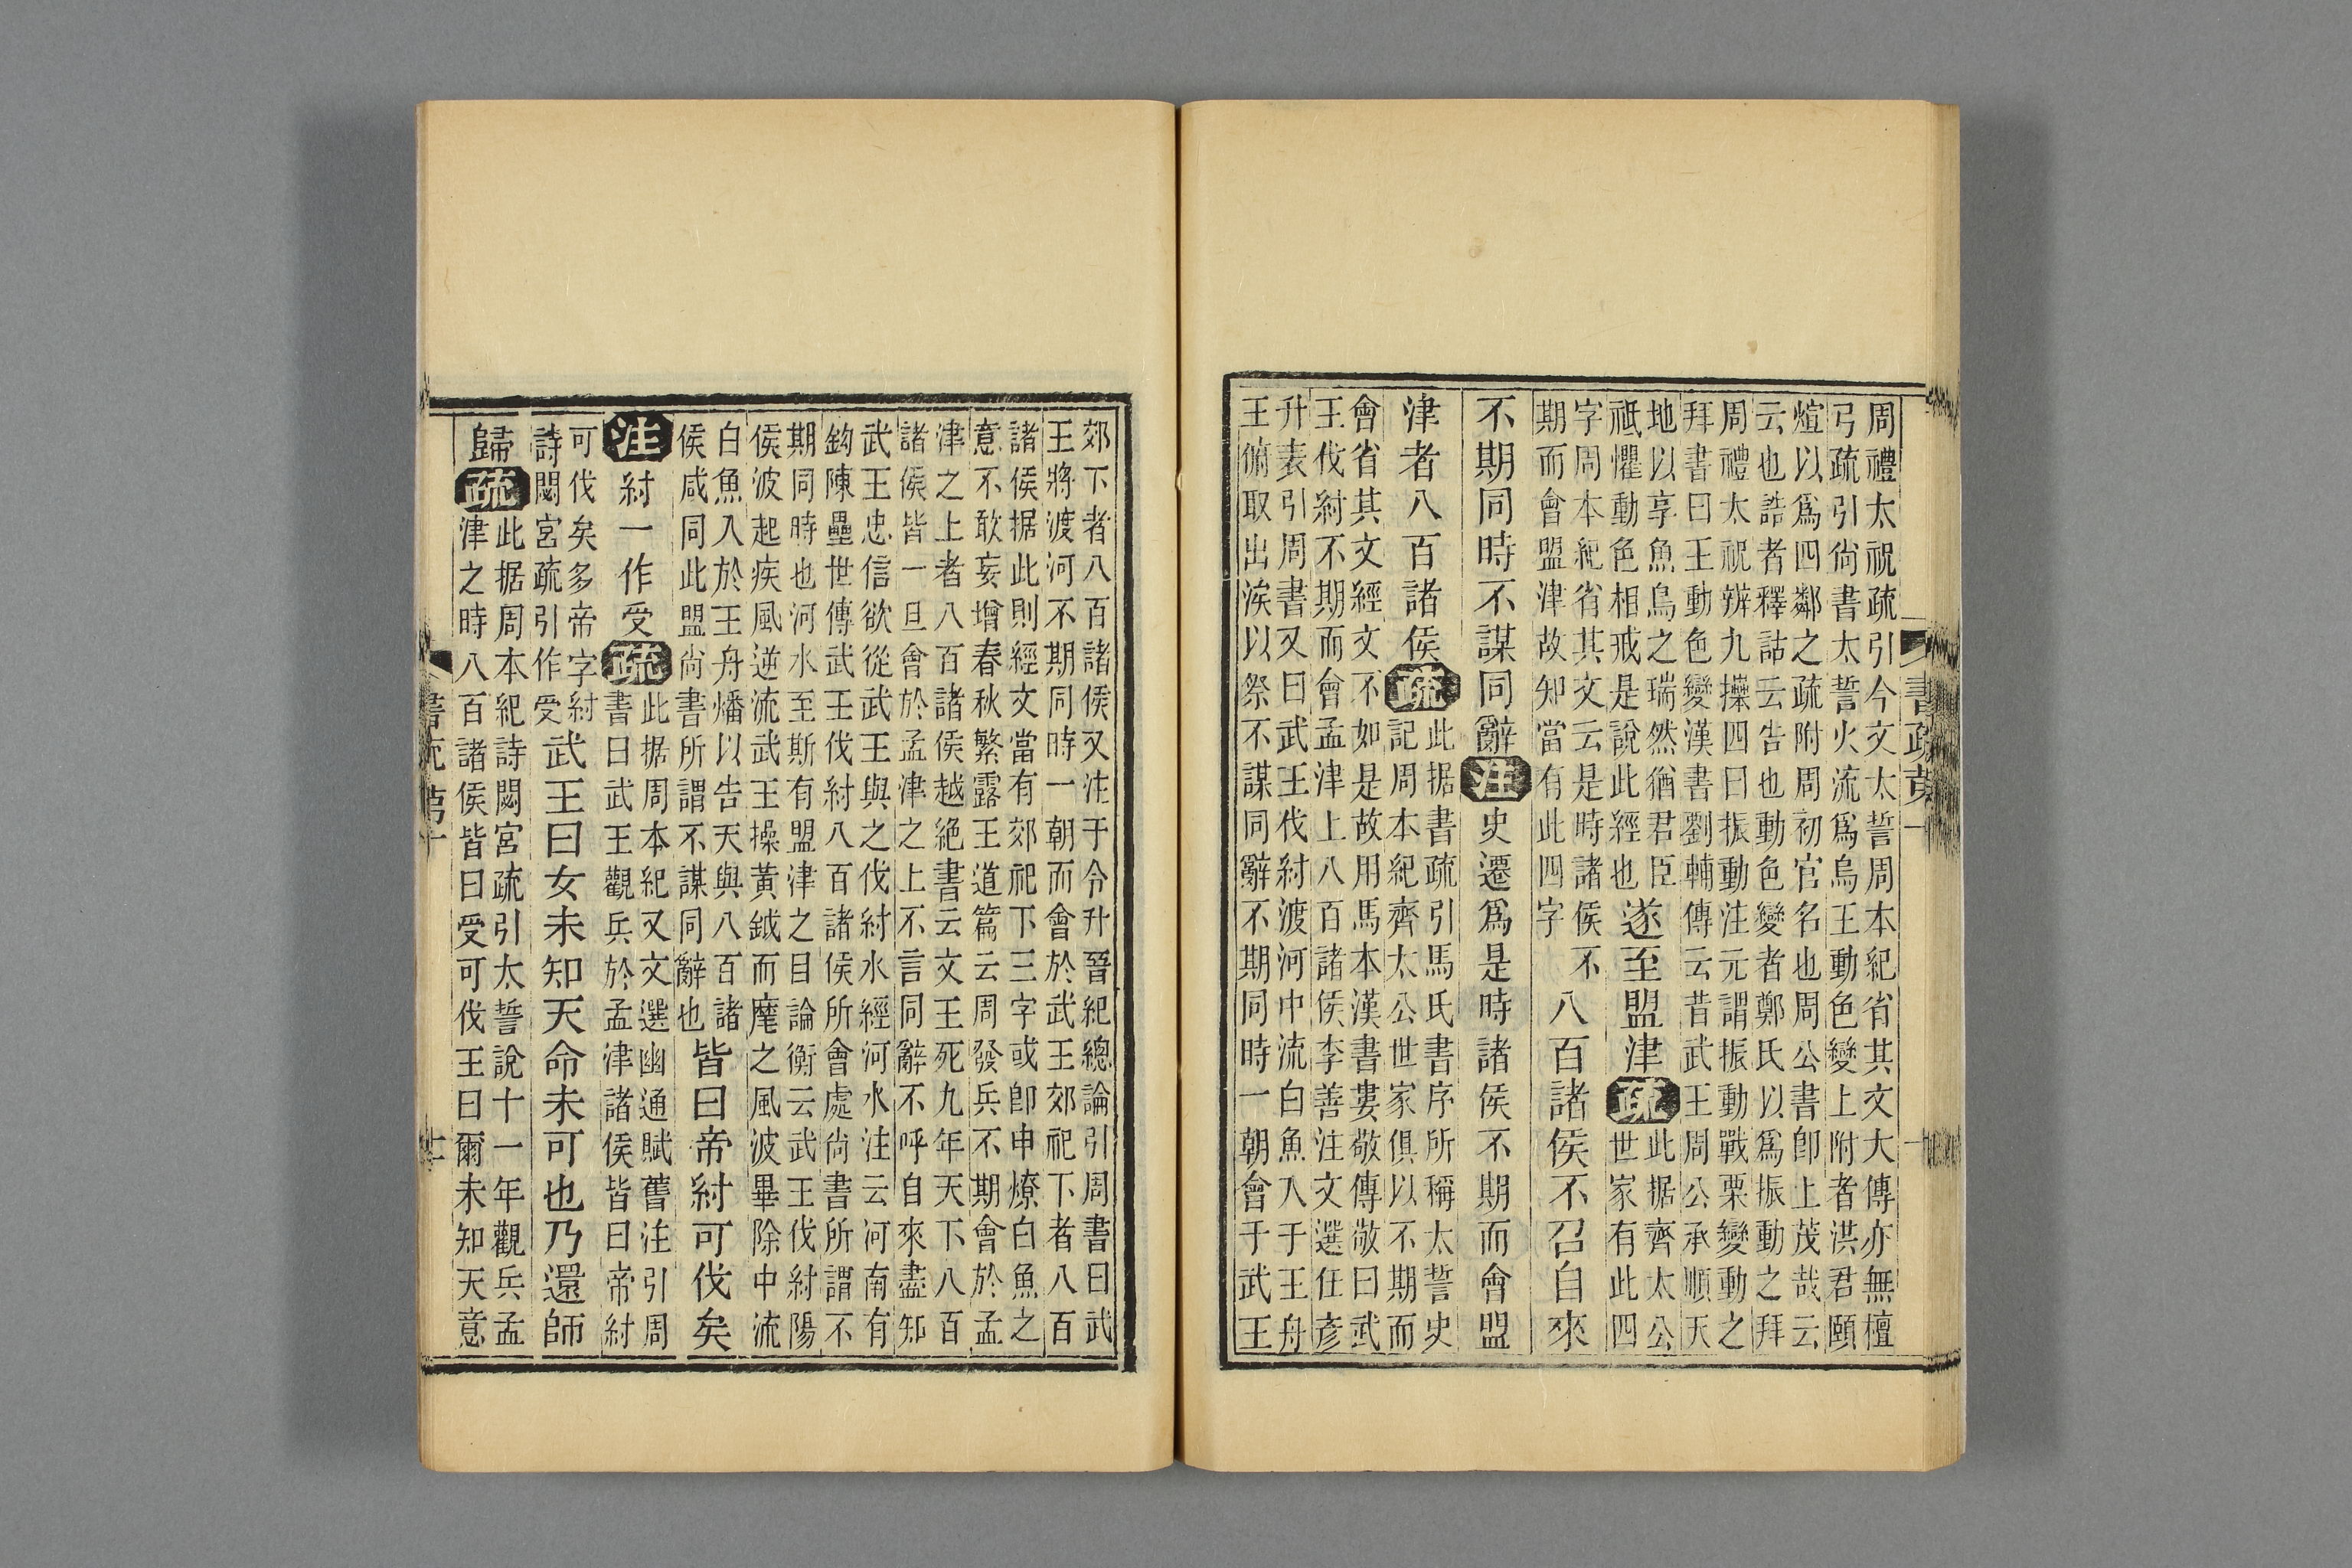 周禮太祝疏引今文太誓周本紀省其文大傳亦無檀
弓疏引尙書太誓火流爲烏王動色變上附者洪君頤
煊以爲四鄰之疏附周初官名也周公書卽上茂哉云
云也誥者釋詁云告也動色變者鄭氏以爲振動之拜
周禮太祝辨九𢷎四曰振動注元謂振動戰栗變動之
拜書曰王動色變漢書劉輔傳云昔武王周公承順天
地以享魚烏之瑞然猶君臣
祇懼動色相戒是說此經也
遂至盟津
疏
此据齊太公
世家有此四
字周本紀省其文云是時諸侯不
期而會盟津故知當有此四字
八百諸侯不召自來
不期同時不謀同辭
注
史遷爲是時諸侯不期而會盟
津者八百諸侯
疏
此据書疏引馬氏書序所稱太誓史
記周本紀齊太公世家俱以不期而
會省其文經文不如是故用馬本漢書婁敬傳敬曰武
王伐紂不期而會孟津上八百諸侯李善注文選任彥
升表引周書又曰武王伐紂渡河中流白魚入于王舟
王俯取出涘以祭不謀同辭不期同時一朝會于武王
郊下者八百諸侯又注于令升晉紀總論引周書曰武
王將渡河不期同時一朝而會於武王郊祀下者八百
諸侯据此則經文當有郊祀下三字或卽申燎白魚之
意不敢妄增春秋繁露王道篇云周發兵不期會於孟
津之上者八百諸侯越絕書云文王死九年天下八百
諸侯皆一旦會於孟津之上不言同辭不呼自來盡知
武王忠信欲從武王與之伐紂水經河水注云河南有
鉤陳壘世傳武王伐紂八百諸侯所會處尙書所謂不
期同時也河水至斯有盟津之目論衡云武王伐紂陽
侯波起疾風逆流武王操黃鉞而麾之風波畢除中流
白魚入於王舟燔以告天與八百諸
侯咸同此盟尙書所謂不謀同辭也
皆曰帝紂可伐矣
注
紂一作受
疏
此据周本紀又文選幽通賦舊注引周
書曰武王觀兵於孟津諸侯皆曰帝紂
可伐矣多帝字紂
詩閟宮疏引作受
武王曰女未知天命未可也乃還師
歸
疏
此据周本紀詩閟宮疏引太誓說十一年觀兵孟
津之時八百諸侯皆曰受可伐王曰爾未知天意